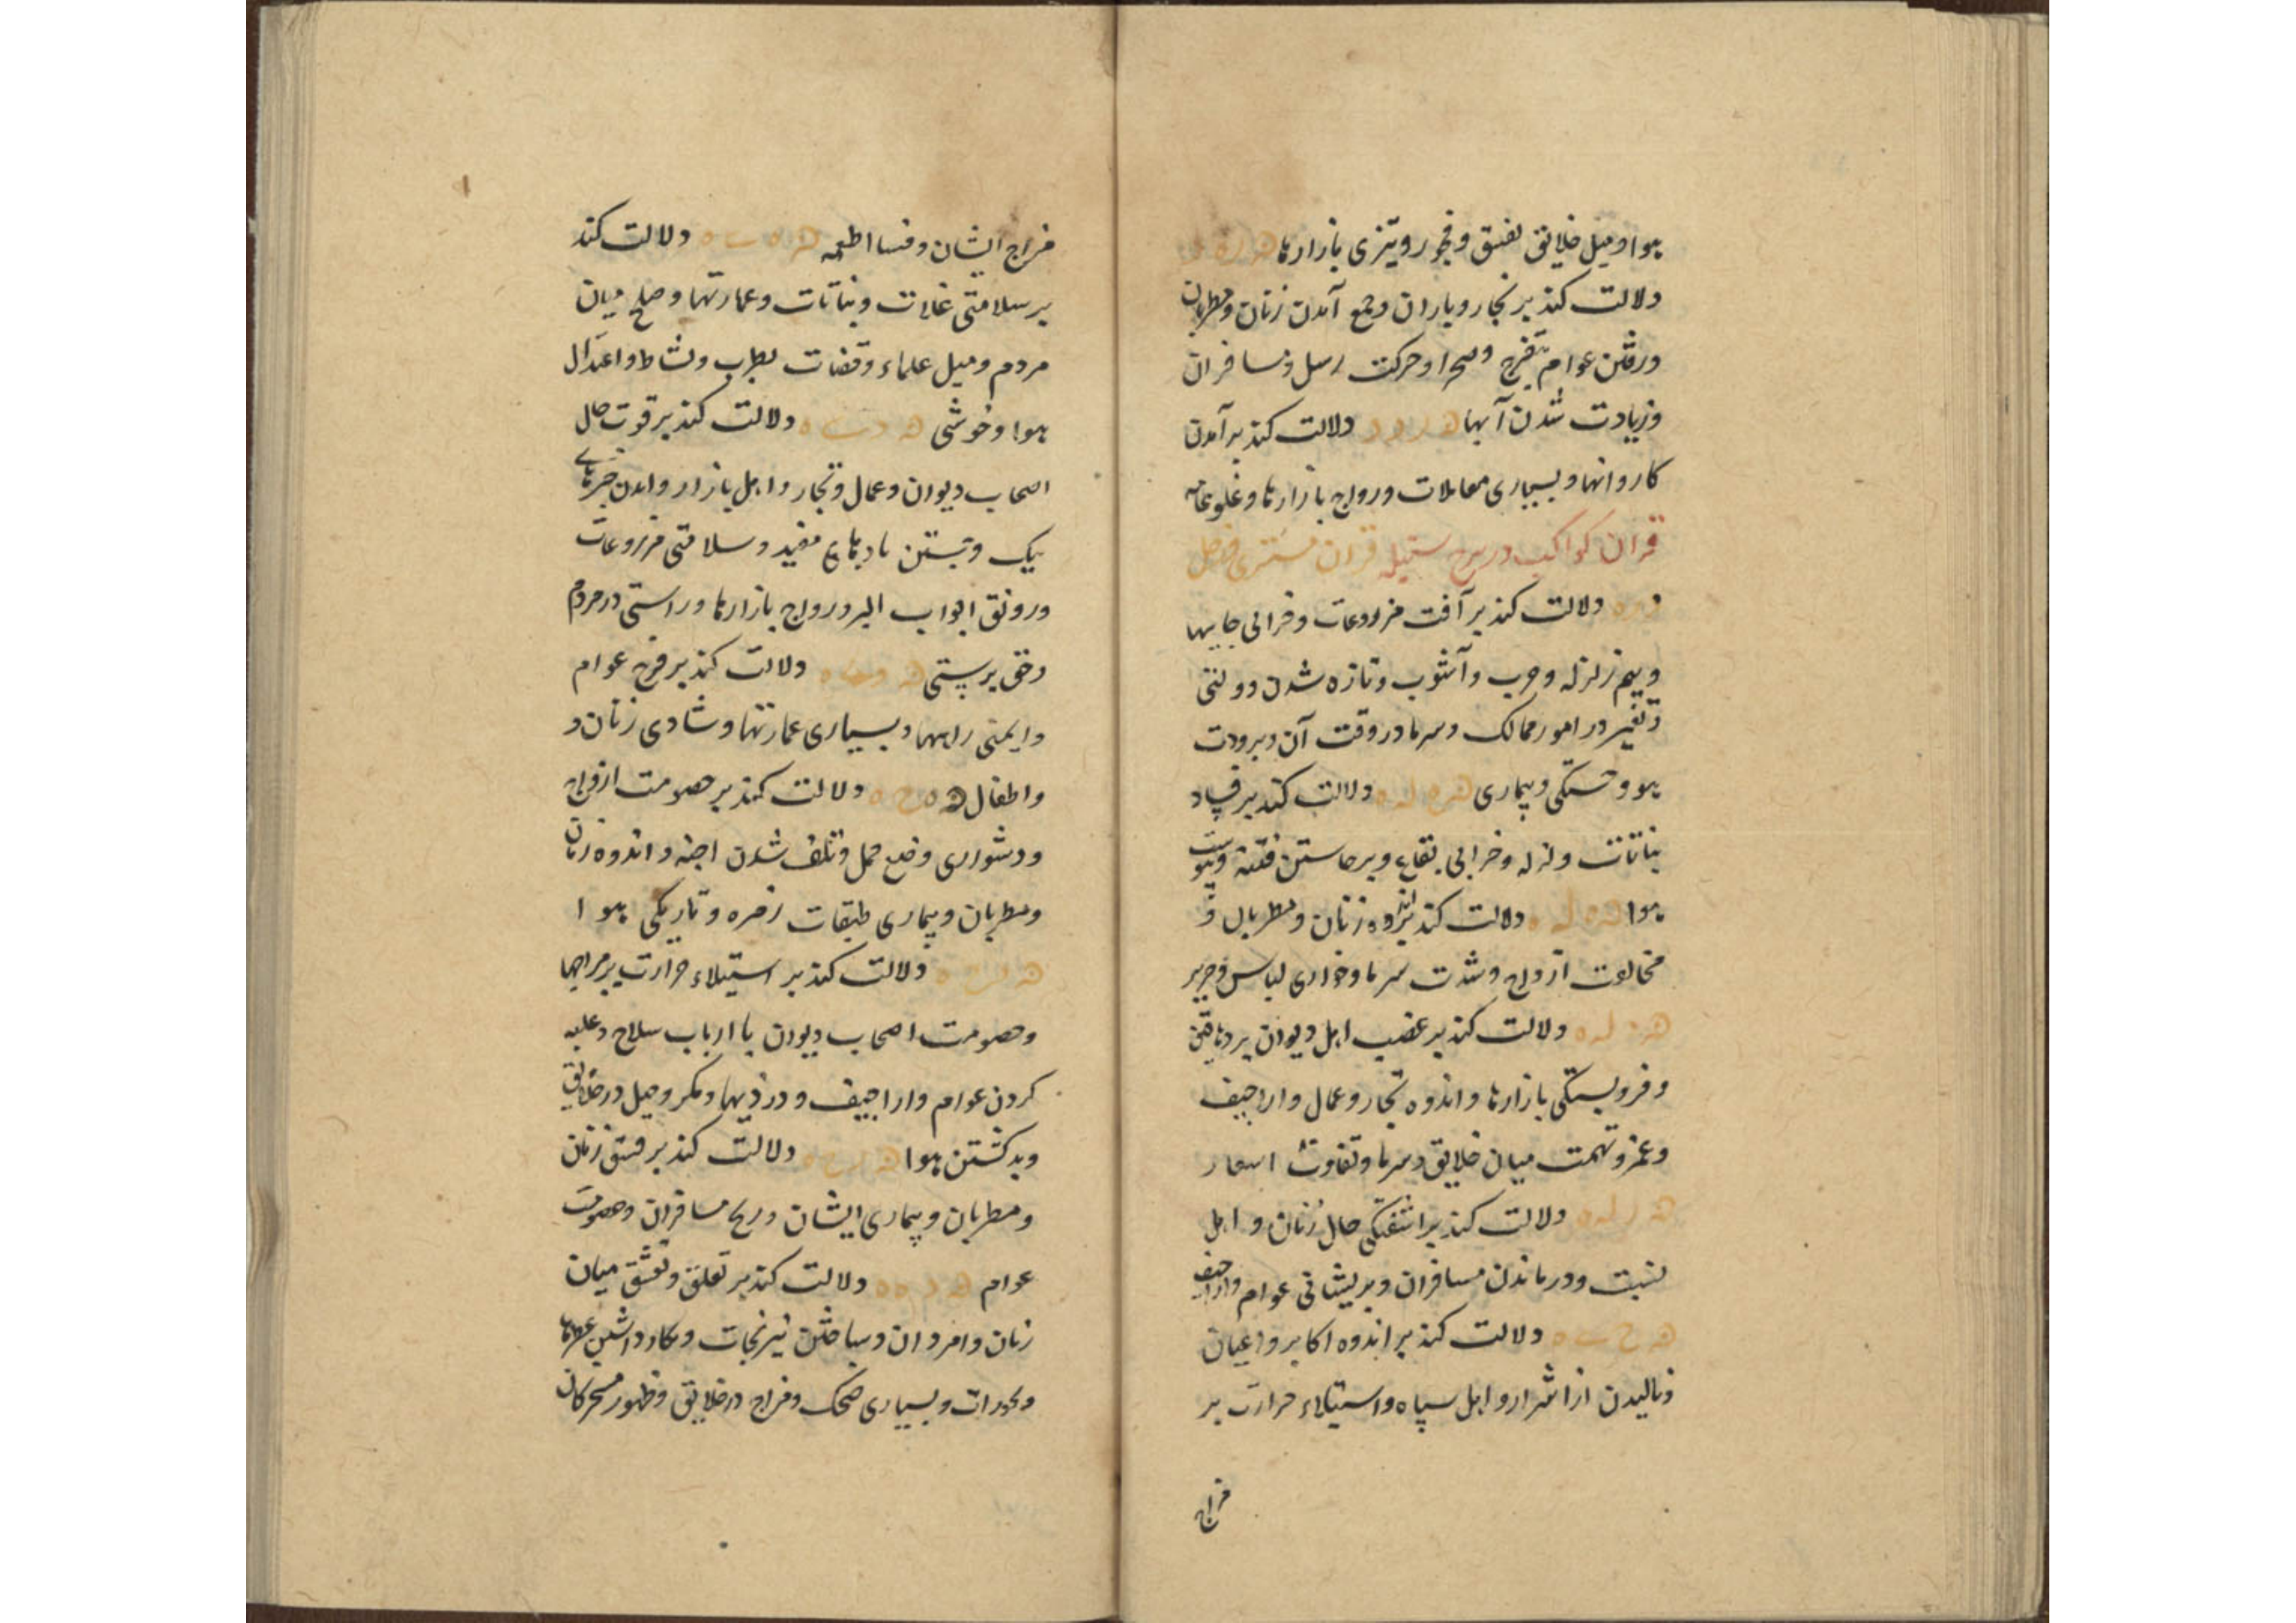 هوا و میل خلایق بفسق و فجور و تیزی بازارها
دلالت کند بر بخار و باران و جمع آمدن زنان و مطربان
و رفتن عوام بتفرج و صحرا و حرکت رسل و مسافران
و زیادت شدن آبها ه د و د دلالت کند بر آمدن
کاروانها و بسیاری معاملات و رواج بازارها و غلو عامه
قران کواکب در برج سنبله قران مشتری و زحل
دلالت کند بر آفت مزروعات و خرابی جایها
و بیم زلزله و حرب و آشوب و تازه شدن دولتی
و تغیر در امور ممالک و سرما در وقت آن و برودت
هوا و خستگی و بیماری دلالت کند بر فساد
نباتات و زلزله و خرابی بقاع و برخاستن فتنه و یبوست
هوا دلالت کند بر اندوه زنان و مطربان و
مخالفت ازواج و شدت سرما و خواری لباس و حریر
دلالت کند بر غضب اهل دیوان بر دهاقین
و فروبستگی بازارها و اندوه تجار و عمال و اراجیف
و غمز و تهمت میان خلایق و سرما و تفاوت اسعار
دلالت کند بر آشفتگی حال زنان و اهل
نسبت و درماندن مسافران و پریشانی عوام و اراجیف
دلالت کند بر اندوه اکابر و اعیان
و نالیدن از اشرار و اهل سپاه و استیلاء حرارت بر
مزاج
مزاج ایشان و فساد اطعمه دلالت کند
بر سلامتی غلات و نباتات و عمارتها و صلح میان
مردم و میل علماء و قضات بطرب و نشاط و اعتدال
هوا و خوشی دلالت کند بر قوت حال
اصحاب دیوان و عمال و تجار و اهل بازار و آمدن خبرهای
نیک و جستن بادهای مفید و سلامتی مزروعات
و رونق ابواب البر و رواج بازارها و راستی در مردم
و حق پرستی دلالت کند بر فرح عوام
و ایمنی راهها و بسیاری عمارتها و شادی زنان و
و اطفال دلالت کند بر خصومت ازواج
و دشواری وضع حمل و تلف شدن اجنه و اندوه زنان
و مطربان و بیماری طبقات زهره و تاریکی هوا
دلالت کند بر استیلاء حرارت بر مزاجها
و خصومت اصحاب دیوان با ارباب سلاح و غلبه
کردن عوام و اراجیف و دزدیها و مکر و حیل در خلایق
و بد گشتن هوا دلالت کند بر فسق زنان
و مطربان و بیماری ایشان و رنج مسافران و خصومت
عوام دلالت کند بر تعلق و تعشق میان
زنان و امردان و ساختن نیرنجات و بکار داشتن عطرها
و بخورات و بسیاری ضحک و مزاح در خلایق و ظهور مسخرگان